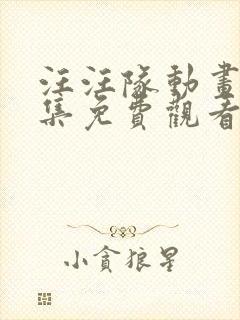 汪汪隊動畫
集免費觀看
小貪狼星